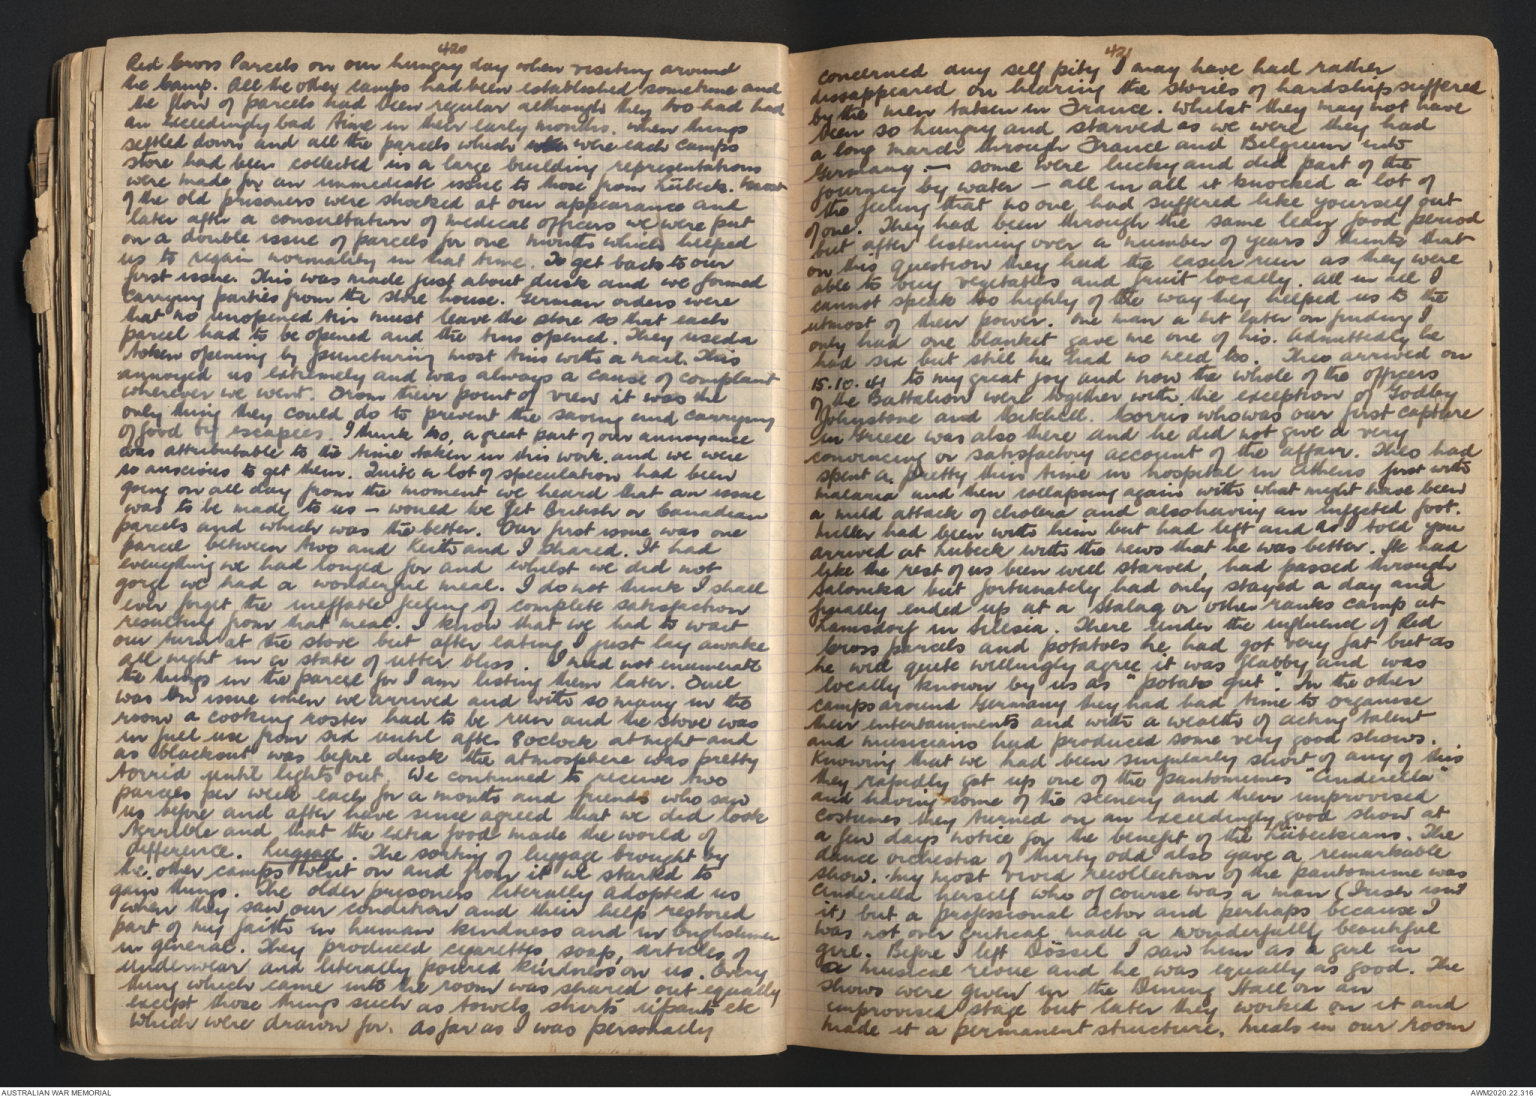 420
Red Cross Parcels on our hungry day when visiting around
the camp. All the other camps had been established sometime and
the flow of parcels had been regular although they too had had
an exceedingly bad time in their early months. When things
settled down and all the parcels which were each camps
store had been collected in a large building representations
were made for an immediate issue to those from Lübeck. Most
of the old prisoners were shocked at our appearance and
later after a consultation of medical officers we were put
on a double issue of parcels for one month which helped
us to regain normality in that time. To get back to our
first issue. This was made just about dusk and we formed
carrying parties from the store house. German orders were
that no unopened tin must leave the store so that each
parcel had to be opened and the tins opened. They used a
token opening by puncturing most tins with a nail. This
annoyed us extremely and was always a cause of complaint
wherever we went. From their point of view it was the
only thing they could do to prevent the saving and carrying
of food by escapees. I think too, a great part of our annoyance
was attributable to the time taken in this work and we were
so anscious to get them. Quite a lot of speculation had been
going on all day from the moment we heard that an issue
was to be made to us - would we get British or Canadian
parcels and which was the better. Our first issue was one
parcel between two and Keith and I shared. It had
everything we had longed for and whilst we did not
gorge we had a wonderful meal. I do not think I shall
ever forget the ineffable feeling of complete satisfaction
resulting from that meal. I know that we had to wait
our turn at the stove but after eating I just lay awake
all night in a state of utter bliss. I need not enumerate
the things in the parcel for I am listing them later. Fuel
was on issue when we arrived and with so many in the
room a cooking roster had to be run and the stove was
in full use from six until after 8 oclock at night and
as blackout was before dusk the atmosphere was pretty
torrid until lights out. We continued to receive two
parcels per week each for a month and friends who saw
us before and after have since agreed that we did look
terrible and that the extra food made the world of
difference. Luggage. The sorting of luggage brought by
the other camps went on and from it we started to
gain things. The older prisoners literally adopted us
when they saw our condition and their help restored
part of my faith in human kindness and in Englishmen
in general. They produced cigarettes, soap, articles of
underwear and literally poured kindness on us. Every
thing which came into the room was shared out equally
except those things such as towels, shirts, u/pants etc
which were drawn for. As far as I was personally
421
concerned any self pity I may have had rather
dissappeared on hearing the stories of hardships suffered
by the men taken in France. Whilst they may not have
been so hungry and starved as we were they had
a long march through France and Belgium into
Germany - some were lucky and did part of the
journey by water - all in all it knocked a lot of
the feeling that no one had suffered like yourself out
of one. They had been through the same lean food period
but after listening over a number of years I think that
on this question they had the easier run as they were
able to buy vegetables and fruit locally. All in all I
cannot speak too highly of the way they helped us to the
utmost of their power. One man a bit later on finding I
only had one blanket gave me one of his. Admittedly he
had six but still he had no need to. Theo arrived on
15.10.41 to my great joy and now the whole of the officers
of the Battalion were together with the exception of Godby
Johnstone and Mitchell. Corris who was our first capture
in Greece was also there and he did not give a very
convincing or satisfactory account of the affair. Theo had
spent a pretty thin time in hospital in Athens first with
malaria and then collapsing again with what might have been
a mild attack of cholera and also having an infected foot.
Miller had been with him but had left and as I told you
arrived at Lubeck with the news that he was better. He had
like the rest of us been well starved, had passed through
Salonika but fortunately had only stayed a day and
finally ended up at a Stalag or other ranks camp at
Lamsdorf in Silesia. There under the influence of Red
Cross parcels and potatoes he had got very fat but as
he will quite willingly agree it was flabby and was
locally known by us as "potato gut". In the other
camps around Germany they had had time to organise
their entertainments and with a wealth of acting talent
and musicians had produced some very good shows.
Knowing that we had been singularly short of any of this
they rapidly got up one of the pantomimes "Cinderella"
and having some of the scenery and their improvised
costumes they turned on an exceedingly good show at
a few days notice for the benefit of the Lübeckians. The
dance orchestra of thirty odd also gave a remarkable
show. My most vivid recollection of the pantomime was
Cinderella herself who of course was a man (Irish isn't
it) but a professional actor and perhaps because I
was not over critical made a wonderfully beautiful
girl. Before I left Dössel I saw him as a girl in
a musical revue and he was equally as good. The
shows were given in the Dining Hall on an
improvised stage but later they worked on it and
made it a permanent structure. Meals in our room
AUSTRALIAN WAR MEMORIAL
AWM2020.22.316